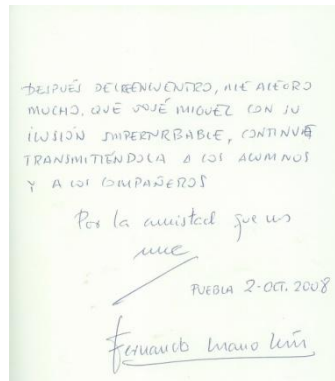 DESPUÉS DEL REENCUENTRO, ME ALEGRO
MUCHO, QUE JOSÉ MIGUEL CON SU
ILUSIÓN IMPERTURBABLE, CONTINUE
TRANSMITIÉNDOLA A LOS ALUMNOS
Y A LOS COMPAÑEROS
Por la amistad que nos
une
PUEBLA 2-OCT. 2008
Fernando